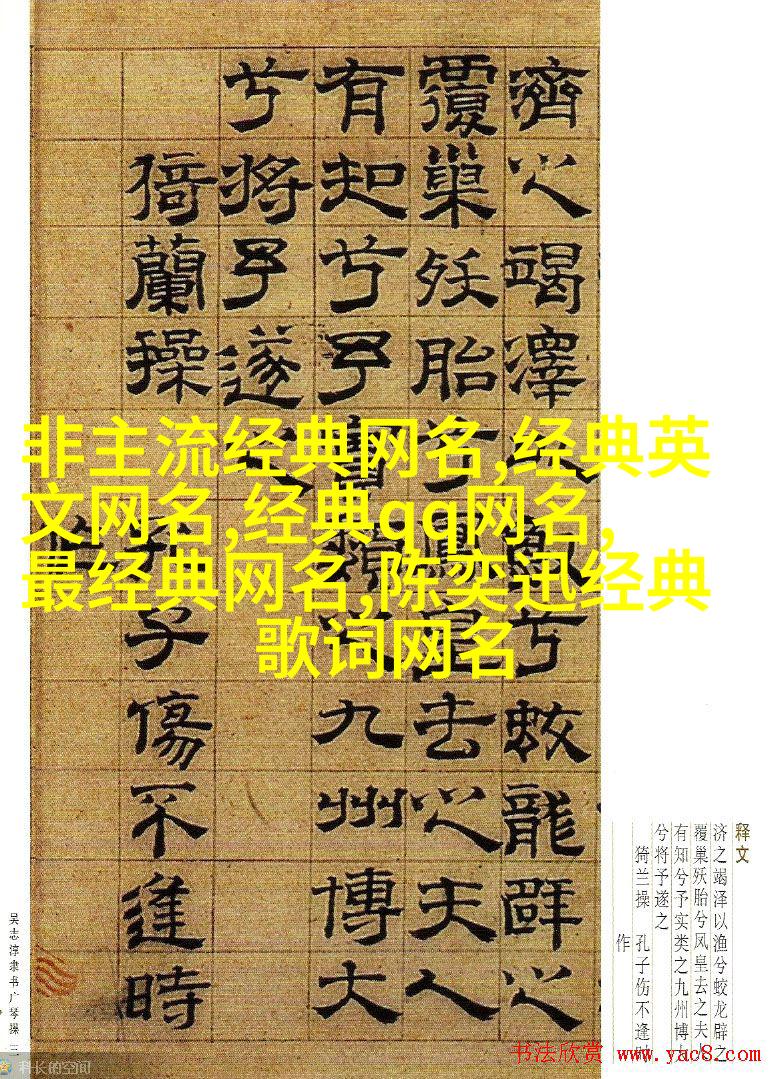 濟之竭澤兮蛟龍辟之
覆巢殀胎兮鳳皇去之夫人
有知兮予實類之九州博大
兮將予遂之
猗蘭操 孔子傷不逢時
作
非主流经典网名,经典英
文网名,经典qq网名,
最经典网名,陈奕迅经典
歌词网名
释文
济之竭泽以渔兮蛟龙辟之
覆巢殀胎兮凤皇去之夫人
有知兮予实类之九州博
兮将予遂之
猗兰操 孔子伤不逢时
作
吴志淳隶书广琴操 三
科长的空间
书法欣赏 www.yac8.com